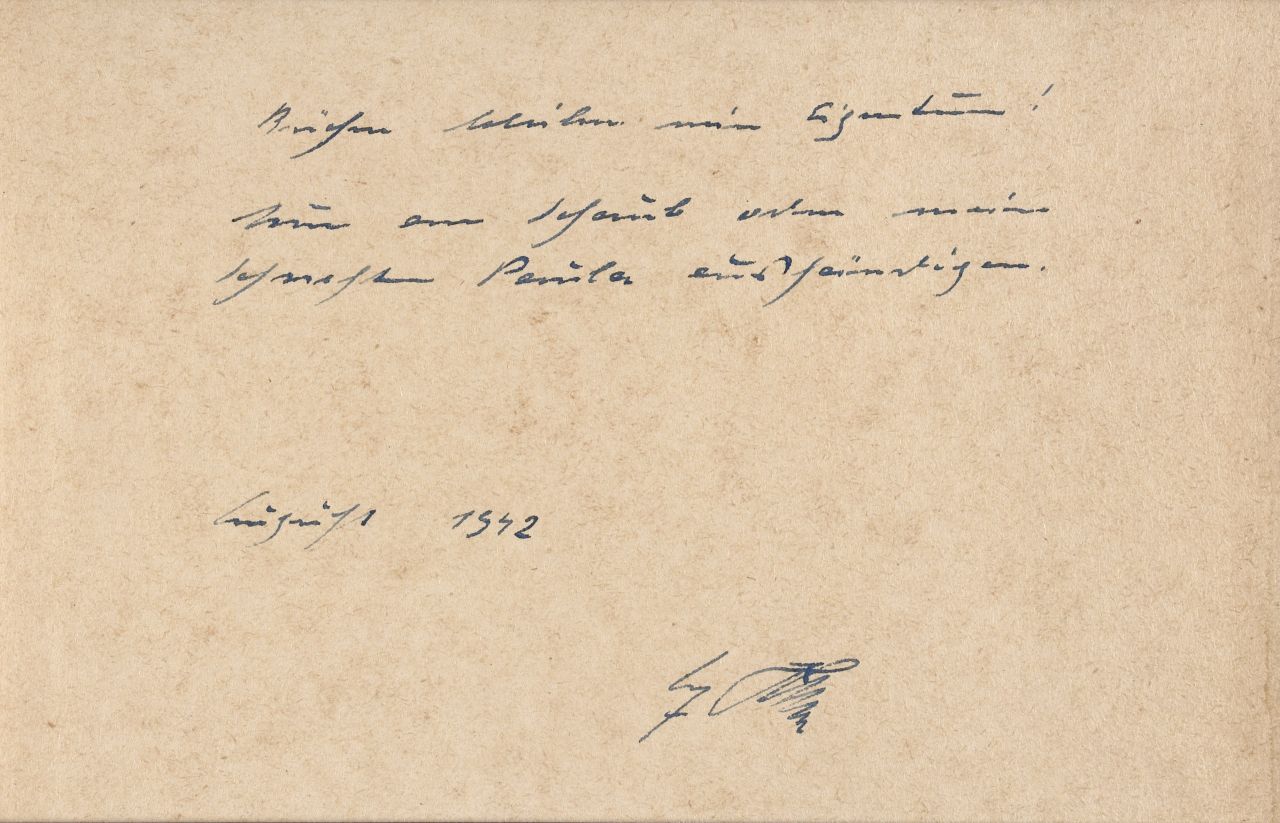 Bücher bleiben mein Eigentum!
Nur an Schaub oder meine
Schwester Paula aushändigen.
August 1942